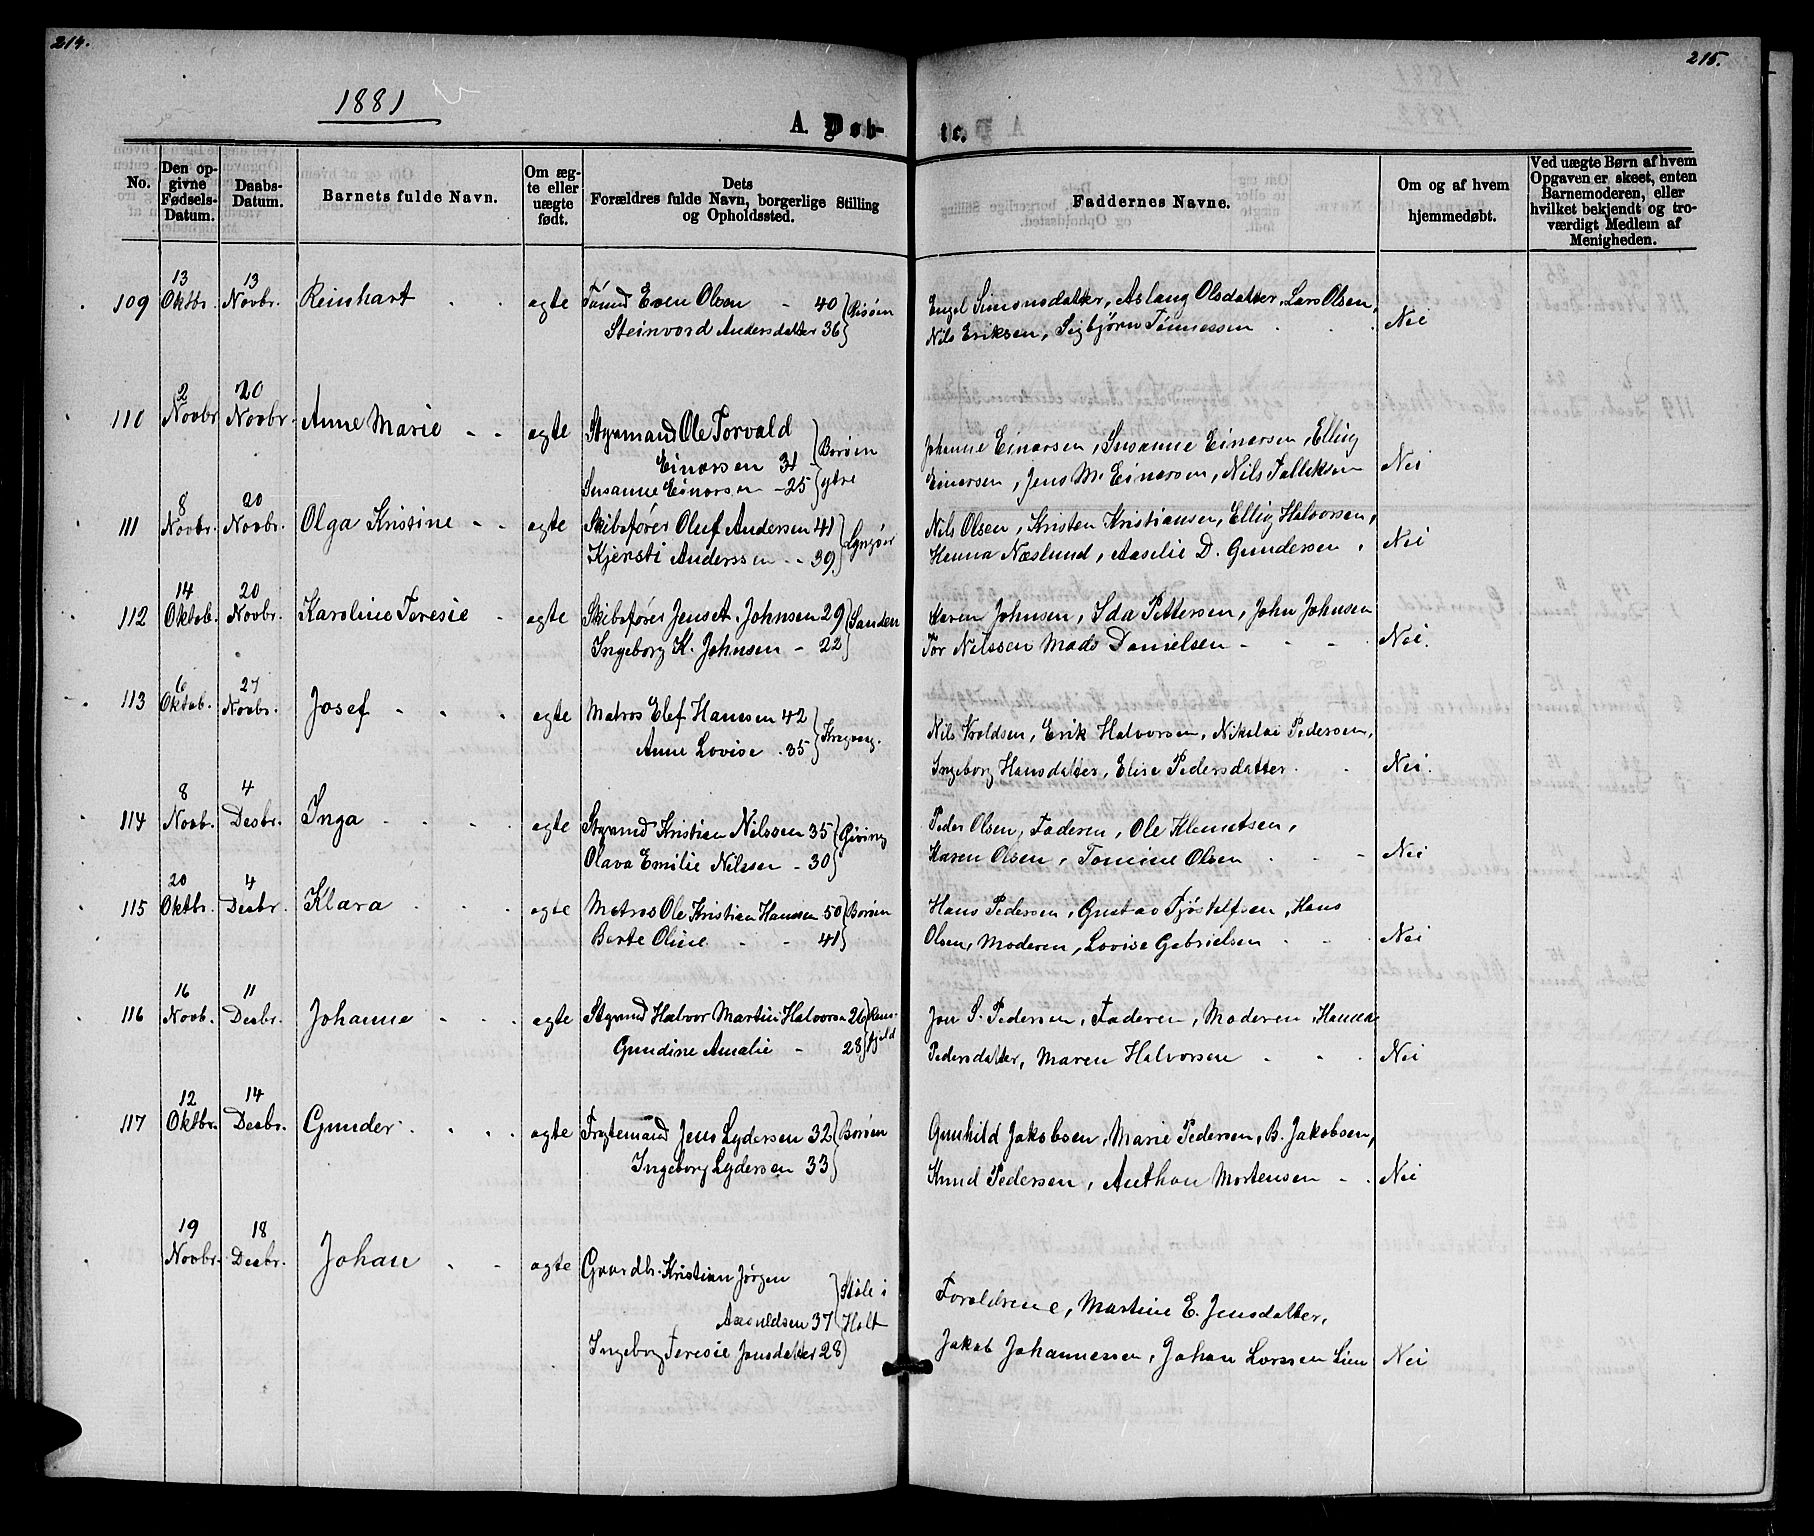 214.
215.
1881
A. Døb-
te.
No.
Den op-
givne
Fødsels-
Datum.
Daabs-
Datum.
Barnets fulde Navn.
Om æg-
te eller
uægte
født.
Dets
Forældres fulde Navn, borgerlige Stilling
og Opholdssted.
Faddernes Navne.
Om og af hvem
hjemmedøbt.
Ved uægte Børn af hvem
Opgaven er skeet, enten
Barnemoderen, eller
hvilket bekjendt og tro-
værdigt Medlem af
Menigheden.
109 13 Oktbr. 13 Novbr. Reinhart - - ægte Tømd Even Olsen - 40 Risøen
Steinvord Andersdatter 36
Engel Simonsdatter, Aslaug Olsdatter, Lars Olsen,
Nils Eriksen, Sigbjørn Tønnessen - - Nei
110 2 Novbr 20 Novbr. Anne Marie - - ægte Styrmand Ole Torvald
Einarsen 31 Borøen
Susanne Einarsen - 25 ytre
Johanne Einarsen, Susanne Einarsen, Ellig
Einersen, Jens M. Einersen, Nils Falleksen Nei
111 8 Novbr. 20 Novbr. Olga Kristine - - ægte Skibsfører Oluf Andersen 41 Lyngør
Kjersti Anderssen - - 39
Nils Olsen, Kristen Kristiansen, Ellig Halvorsen,
Henna Næslund, Aaselie D. Gundersen, Nei
112 14 Oktob. 20 Novbr. Karoline Teresie - ægte Skibsfører Jens A. Johnsen 29 Sanden
Ingeborg K. Johnsen - 22
Karen Johnsen, Ida Pettersen, John Johnsen
Tor Nilssen Mads Danielsen - - - Nei.
113 6 Oktob. 27 Novbr. Josef - - - - ægte Matros Elef Hanssen 42 Kragvaag.
Anne Lovise . 35
Nils Vroldsen, Erik Halvorsen, Nikolai Pedersen,
Ingeborg Hansdatter, Elise Pedersdatter. - Nei.
114 8 Novb. 4 Desbr. Inga - - - - ægte Styrmd Kristian Nilssen 35 Giving
Olava Emilie Nilssen - 30
Peder Olsen, Faderen, Ole Klemetsen,
Karen Olsen, Tomine Olsen - - - Nei
115 20 Oktbr. 4 Desbr. Klara - - - ægte Matros Ole Kristian Hanssen 50 Borøen
Berte Oline - - 41
Hans Pedersen, Gustav Tjøstelfsen, Hans
Olsen, Moderen, Lovise Gabrielsen - - - Nei
116 16 Novb. 11 Desbr. Johanne - - - ægte Styrmd Halvor Martin Halvorse 26
Gundine Amalie - 28 fjeld
Jon S. Pedersen, Faderen, Moderen, Hanna
Pedersdatter, Maren Halvorsen - - - Nei
117 12 Oktbr. 14 Desbr. Gunder - - - - ægte Fragtemand Jens Lydersen 32 Borøen
Ingeborg Lydersen 33
Gunhild Jakobsen, Marie Pedersen, B. Jakobsen,
Knud Pedersen, Anthon Mortensen - . Nei
19 Novbr. 18 Desbr. Johan - - ægte Gaardbr. Kristian Jørgen
Aasuldsen 37 Støle i Holt
Ingeborg Teresie Jonsdatter 28
Forældrene, Martine E. Jensdatter,
Jakob Johannessen, Johan Larssen Lien Nei